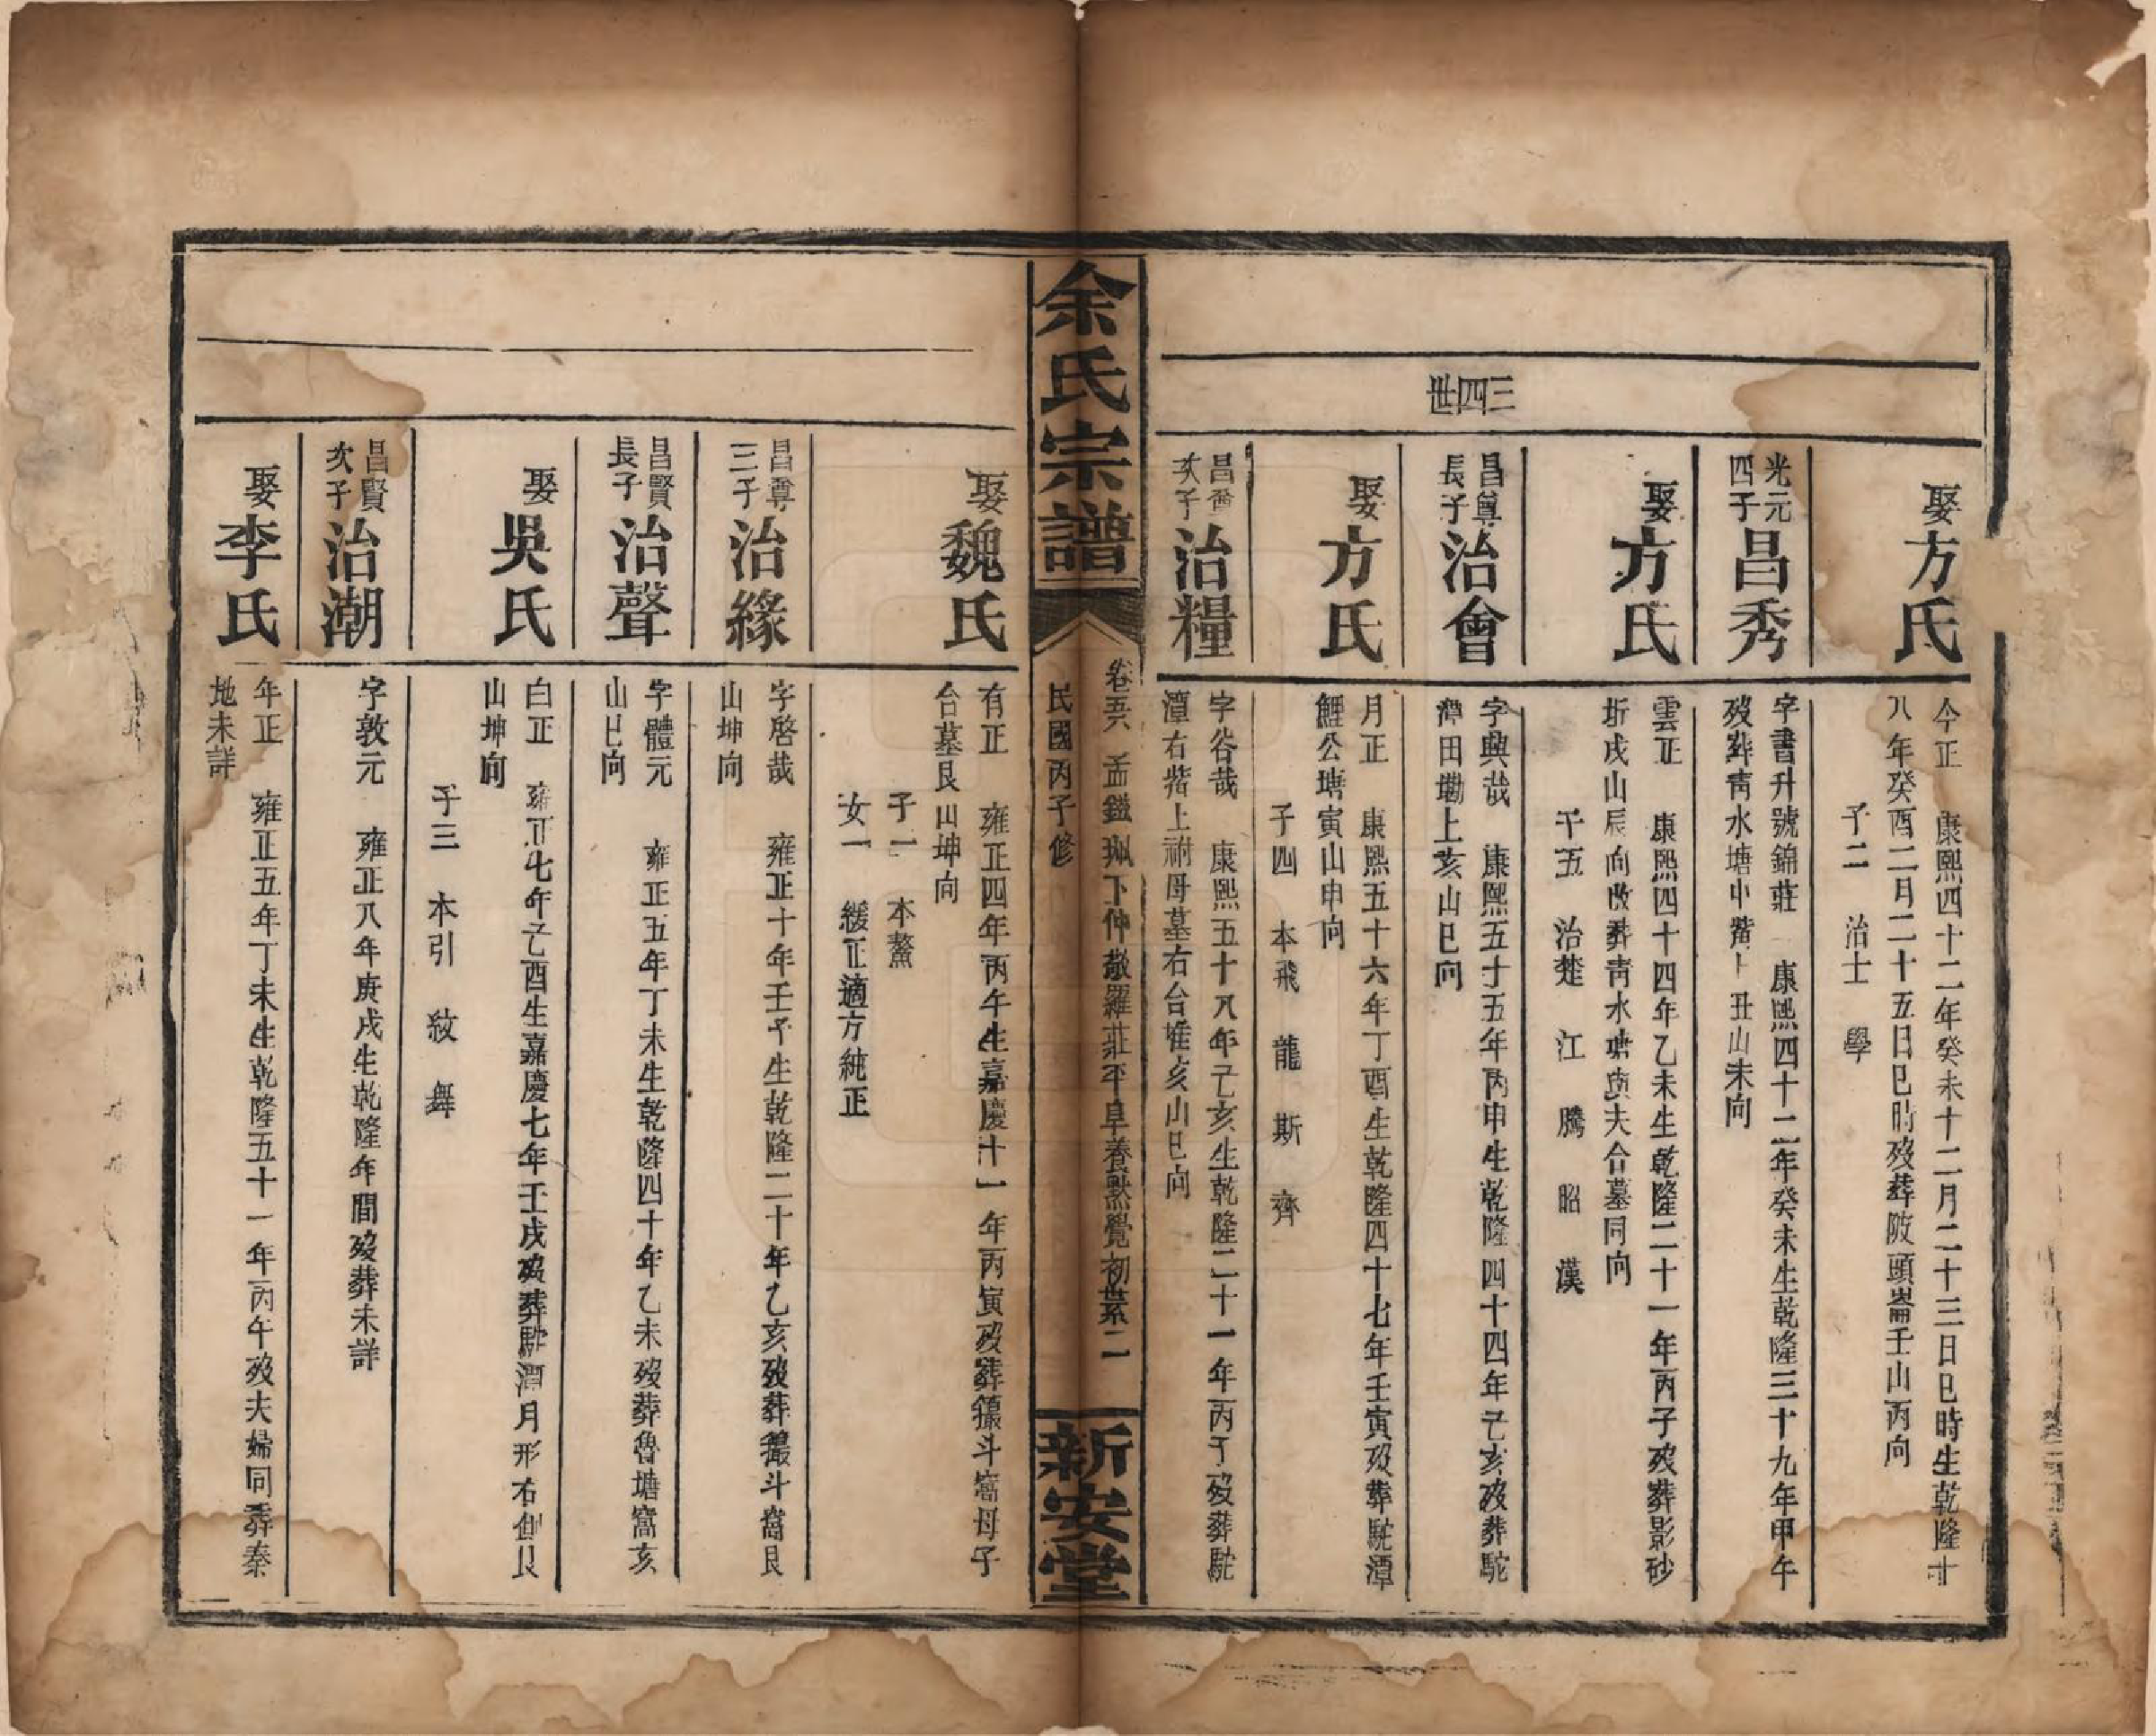 三四世
娶方氏
今正 康熙四十二年癸未十二月二十三日巳時生乾隆十
八年癸酉二月二十五日巳時歿葬陂頭崙壬山丙向
子二 治士 學
光元
四子
昌秀
字書升號錦莊 康熙四十二年癸未生乾隆三十九年甲午
歿葬靑水塘中 丑山未向
娶方氏
雲正 康熙四十四年乙未生乾隆二十一年丙子歿葬影砂
圻戌山辰向改葬靑水塘 夫合墓同向
子五 治楚 江 騰 昭 漢
昌尊
長子
治會
字典哉 康熙五十五年丙申生乾隆四十四年己亥歿葬駝
潭田 上亥山巳向
娶方氏
月正 康熙五十六年丁酉生乾隆四十七年壬寅歿葬駝潭
鯉公塘寅山申向
子四 本飛 龍 斯 齊
昌尊
次子
治糧
字谷哉 康熙五十八年己亥生乾隆二十一年丙子歿葬駝
潭右 上祔母墓右台堆亥山巳向
余氏宗譜
卷五六 孟鎰珮下仲敬羅莊平阜養默覺初世系二
民國丙子修
新安堂
娶魏氏
有正 雍正四年丙午生嘉慶十一年丙寅歿葬 斗窩母子
台墓艮山坤向
子一 本鰲
女一 緩正適方純正
昌尊
三子
治緣
字啓哉 雍正十年壬子生乾隆二十年乙亥歿葬 斗窩艮
山坤向
昌賢
長子
治聲
字體元 雍正五年丁未生乾隆四十年乙未歿葬魯塘窩亥
山巳向
娶吳氏
白正 雍正七年己酉生嘉慶七年壬戌歿葬駝潭月形右側艮
山坤向
子三 本引 紋 舞
昌賢
次子
治潮
字敦元 雍正八年庚戌生乾隆年間歿葬未詳
娶李氏
年正 雍正五年丁未生乾隆五十一年丙午歿夫婦同葬秦
地未詳